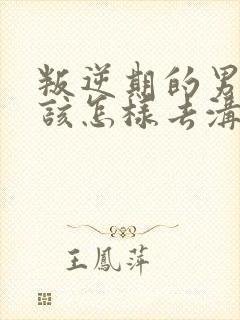 叛逆期的男
该怎样去溝
王鳳萍